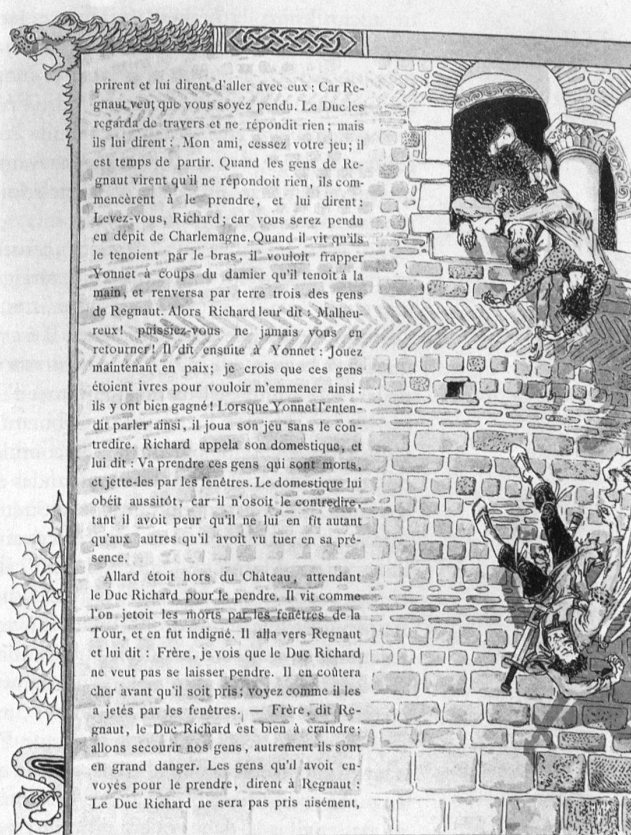 prirent et lui dirent d'aller avec eux : Car Re-
gnaut veut que vous soyez pendu. Le Duc les
regarda de travers et ne répondit rien ; mais
ils lui dirent : Mon ami, cessez votre jeu ; il
est temps de partir. Quand les gens de Re-
gnaut virent qu'il ne répondoit rien, ils com-
mencèrent à le prendre, et lui dirent :
Levez-vous, Richard ; car vous serez pendu
en dépit de Charlemagne. Quand il vit qu'ils
le tenoient par le bras, il vouloit frapper
Yonnet à coups du damier qu'il tenoit à la
main, et renversa par terre trois des gens
de Regnaut. Alors Richard leur dit : Malheu-
reux ! puissiez-vous ne jamais vous en
retourner ! Il dit ensuite à Yonnet : Jouez
maintenant en paix ; je crois que ces gens
étoient ivres pour vouloir m'emmener ainsi :
ils y ont bien gagné ! Lorsque Yonnet l'enten-
dit parler ainsi, il joua son jeu sans le con-
tredire. Richard appela son domestique, et
lui dit : Va prendre ces gens qui sont morts,
et jette-les par les fenêtres. Le domestique lui
obéit aussitôt, car il n'osoit le contredire,
tant il avoit peur qu'il ne lui en fît autant
qu'aux autres qu'il avoit vu tuer en sa pré-
sence.
Allard étoit hors du Château, attendant
le Duc Richard pour le pendre. Il vit comme
l'on jetoit les morts par les fenêtres de la
Tour, et en fut indigné. Il alla vers Regnaut
et lui dit : Frère, je vois que le Duc Richard
ne veut pas se laisser pendre. Il en coûtera
cher avant qu'il soit pris ; voyez comme il les
a jetés par les fenêtres. — Frère, dit Re-
gnaut, le Duc Richard est bien à craindre ;
allons secourir nos gens, autrement ils sont
en grand danger. Les gens qu'il avoit en-
voyés pour le prendre, dirent à Regnaut :
Le Duc Richard ne sera pas pris aisément,